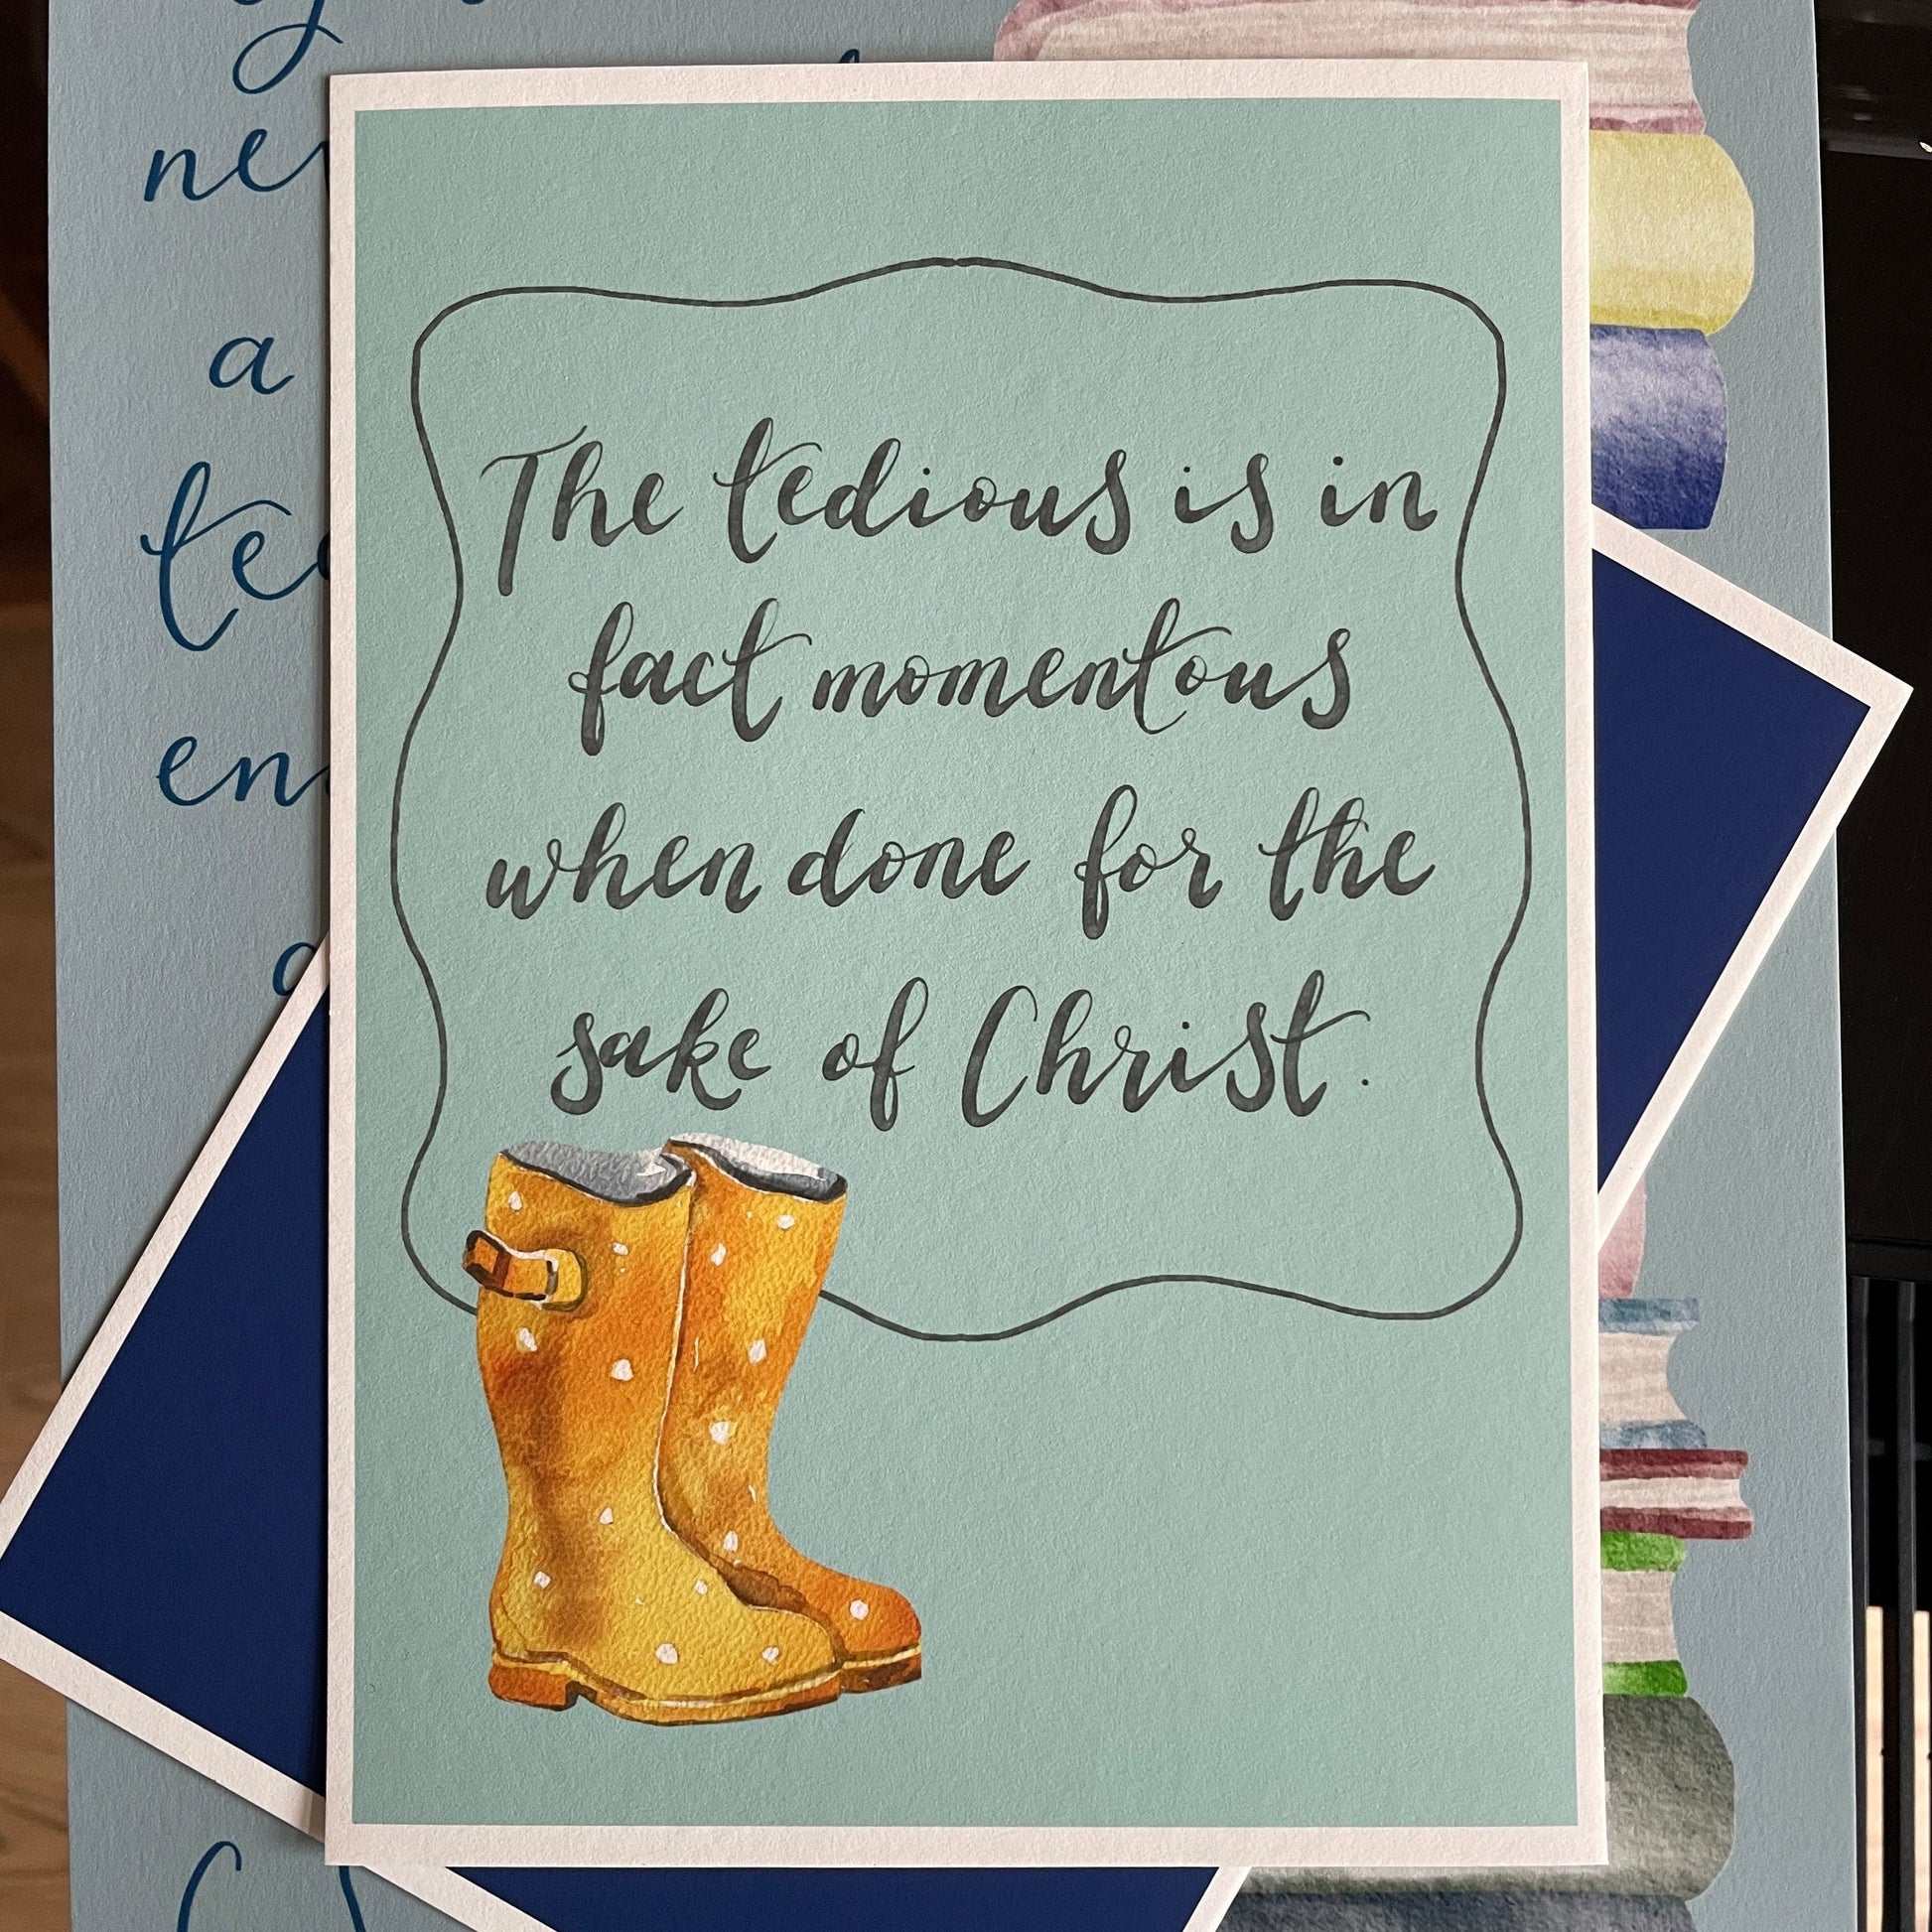 a
The tedious is in
fact momentous
when done for the
sake of Christ.